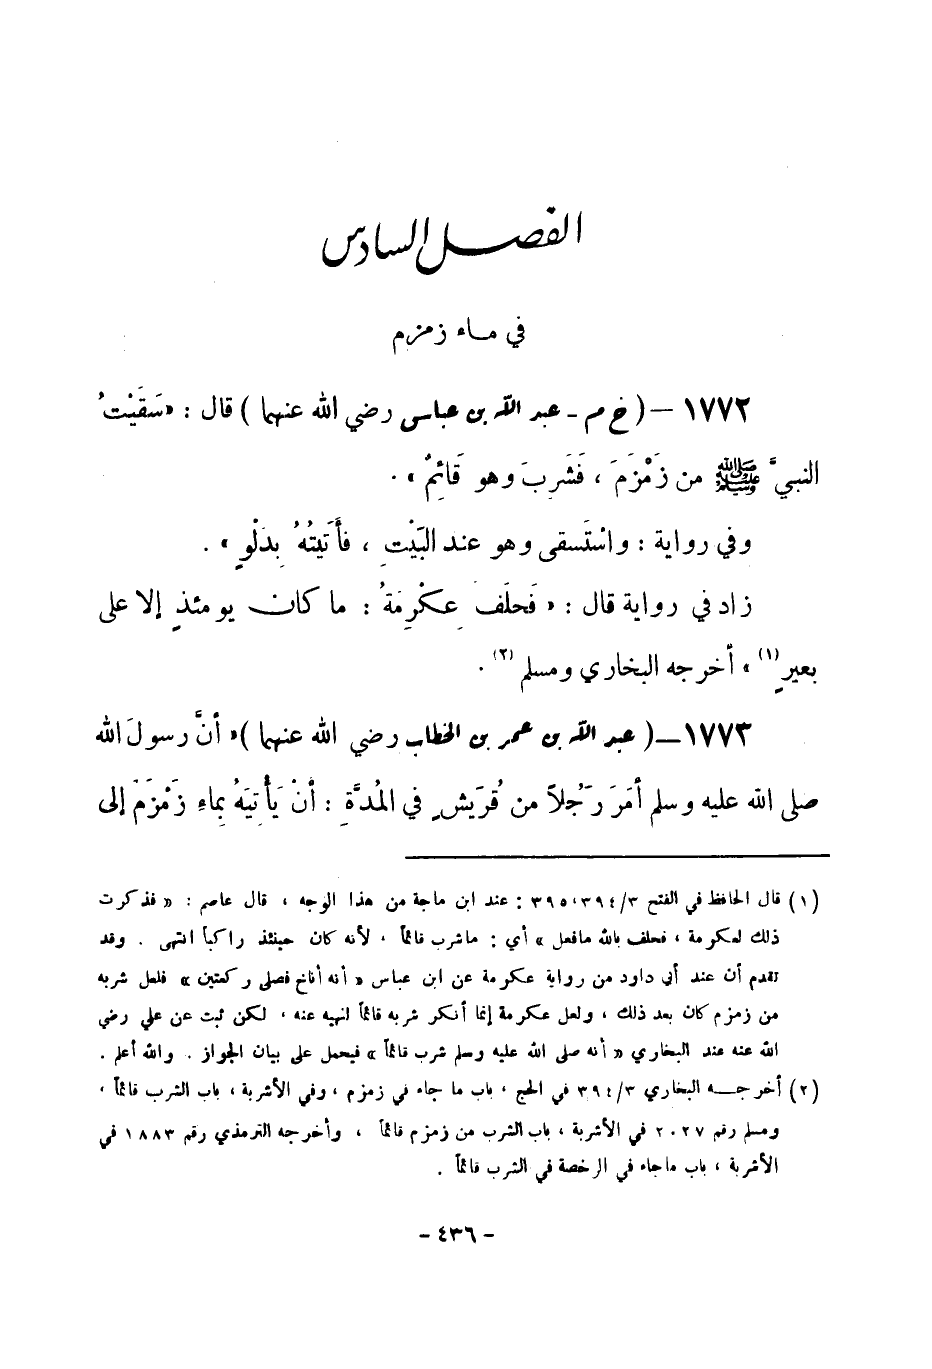 الفصل السادس
في مـاء زمزم
١٧٧٢ – ( خ م - عبد اللّه بن عباس رضي الله عنهما ) قال : «سَقَيْتُ
النبيَّ ﷺ من زَمْزَمَ ، فَشَرِبَ وهو قَائِمٌ » .
وفي رواية : واسْتَسقى وهو عند البَيْتِ ، فأَتَيتُهُ بِدَلْوٍ » .
زاد في رواية قال : « فَحلَف عِكْرِمَةُ : ما كان يومئذٍ إلا على
بعيرٍ (١) » أخرجه البخاري ومسلم (٢) .
١٧٧٣ – ( عبد اللّه بن عمر بن الخطاب رضي الله عنهما )« أنَّ رسولَ الله
صلى الله عليه وسلم أَمَرَ رَجُلاً من قُرَيشٍ في المُدَّةِ : أنْ يَأْتِيَهُ بِماءِ زَمْزَمَ إلى
(١) قال الحافظ في الفتح ٣/٣٩٤،٣٩٥ : عند ابن ماجة من هذا الوجه ، قال عاصم : « فذكرت
ذلك لعكرمة ، فحلف بالله مافعل » أي : ماشرب قائماً ، لأنه كان حينئذ راكباً انتهى . وقد
تقدم أن عند أبي داود من رواية عكرمة عن ابن عباس « أنه أناخ فصلى ركعتين » فلعل شربه
من زمزم كان بعد ذلك ، ولعل عكرمة إنما أنكر شربه قائماً لنهيه عنه ، لكن ثبت عن علي رضي
الله عنه عند البخاري « أنه صلى الله عليه وسلم شرب قائماً » فيحمل على بيان الجواز . والله أعلم .
(٢) أخرجـــه البخاري ٣/٣٩٤ في الحج ، باب ما جاء في زمزم ، وفي الأشربة ، باب الشرب قائماً ،
ومسلم رقم ٢٠٢٧ في الأشربة ، باب الشرب من زمزم قائماً ، وأخرجه الترمذي رقم ١٨٨٣ في
الأشربة ، باب ماجاء في الرخصة في الشرب قائماً .
- ٤٣٦ -